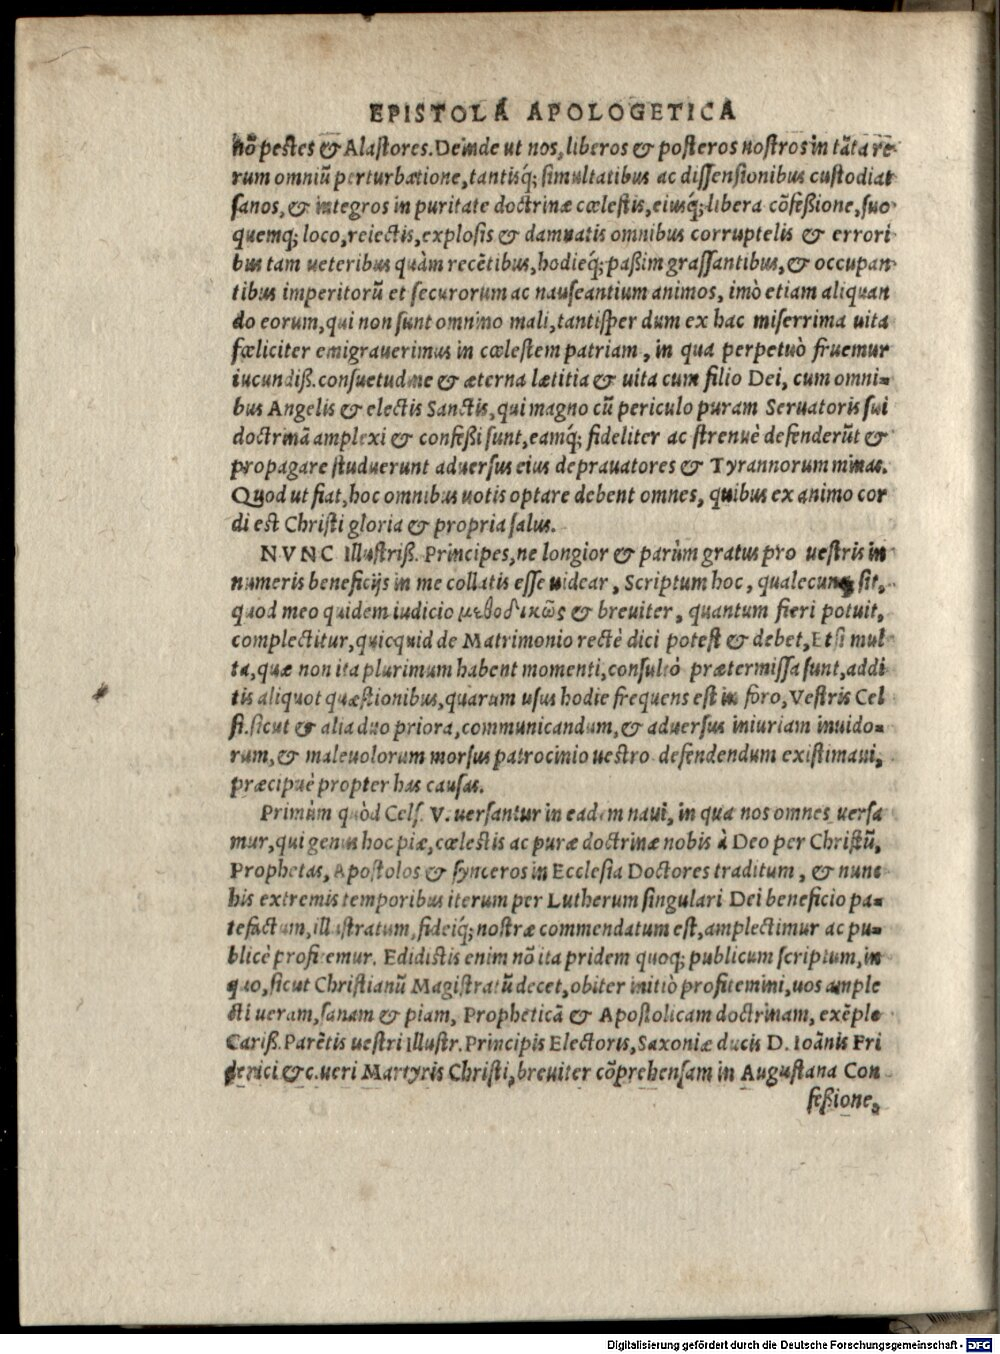 EPISTOLA APOLOGETICA
nõ pestes & Alastores. Deinde ut nos, liberos & posteros nostros in tãta re-
rum omniũ perturbatione, tantisq́; simultatibus ac dissensionibus custodiat
sanos, & integros in puritate doctrinæ cœlestis, eiusq́; libera cõfeßione, suo
quemq; loco, reiectis, explosis & damnatis omnibus corruptelis & errori
bus tam ueteribus quàm recẽtibus, hodieq́; paßim grassantibus, & occupan
tibus imperitorũ et securorum ac nauseantium animos, imò etiam aliquan
do eorum, qui non sunt omnino mali, tantisper dum ex hac miserrima uita
fœliciter emigrauerimus in cœlestem patriam, in qua perpetuò fruemur
iucundiß. consuetudine & æterna lætitia & uita cum filio Dei, cum omni=
bus Angelis & electis Sanctis, qui magno cũ periculo puram Seruatoris sui
doctrinã amplexi & confeßi sunt, eamq́; fideliter ac strenuè defenderũt &
propagare studuerunt aduersus eius deprauatores & Tyrannorum minas.
Quod ut fiat, hoc omnibus uotis optare debent omnes, quibus ex animo cor
di est Christi gloria & propria salus.
NVNC Illustriß. Principes, ne longior & parùm gratus pro uestris in
numeris beneficijs in me collatis esse uidear, Scriptum hoc, qualecunq; sit,
quod meo quidem iudicio μεθοδικῶς & breuiter, quantum fieri potuit,
complectitur, quicquid de Matrimonio rectè dici potest & debet, Etsi mul
ta, quæ non ita plurimum habent momenti, consultò prætermissa sunt, addi
tis aliquot quæstionibus, quarum usus hodie frequens est in foro, Vestris Cel
si. sicut & alia duo priora, communicandum, & aduersus iniuriam inuido=
rum, & maleuolorum morsus patrocinio uestro defendendum existimaui,
præcipuè propter has causas.
Primùm quòd Cels. V. uersantur in eadem naui, in qua nos omnes uersa
mur, qui genus hoc piæ, cœlestis ac puræ doctrinæ nobis à Deo per Christũ,
Prophetas, Apostolos & synceros in Ecclesia Doctores traditum, & nunc
his extremis temporibus iterum per Lutherum singulari Dei beneficio pa=
tefactum, illustratum, fideiq́; nostræ commendatum est, amplectimur ac pu=
blicè profitemur. Edidistis enim nõ ita pridem quoq; publicum scriptum, in
quo, sicut Christianũ Magistratũ decet, obiter initiò profitemini, uos ample
cti ueram, sanam & piam, Propheticã & Apostolicam doctrinam, exẽplo
Cariß. Parẽtis uestri Illustr. Principis Electoris, Saxoniæ ducis D. Ioãnis Fri
derici &c. ueri Martyris Christi, breuiter cõprehensam in Augustana Con
feßione,
Digitalisierung gefördert durch die Deutsche Forschungsgemeinschaft - DFG